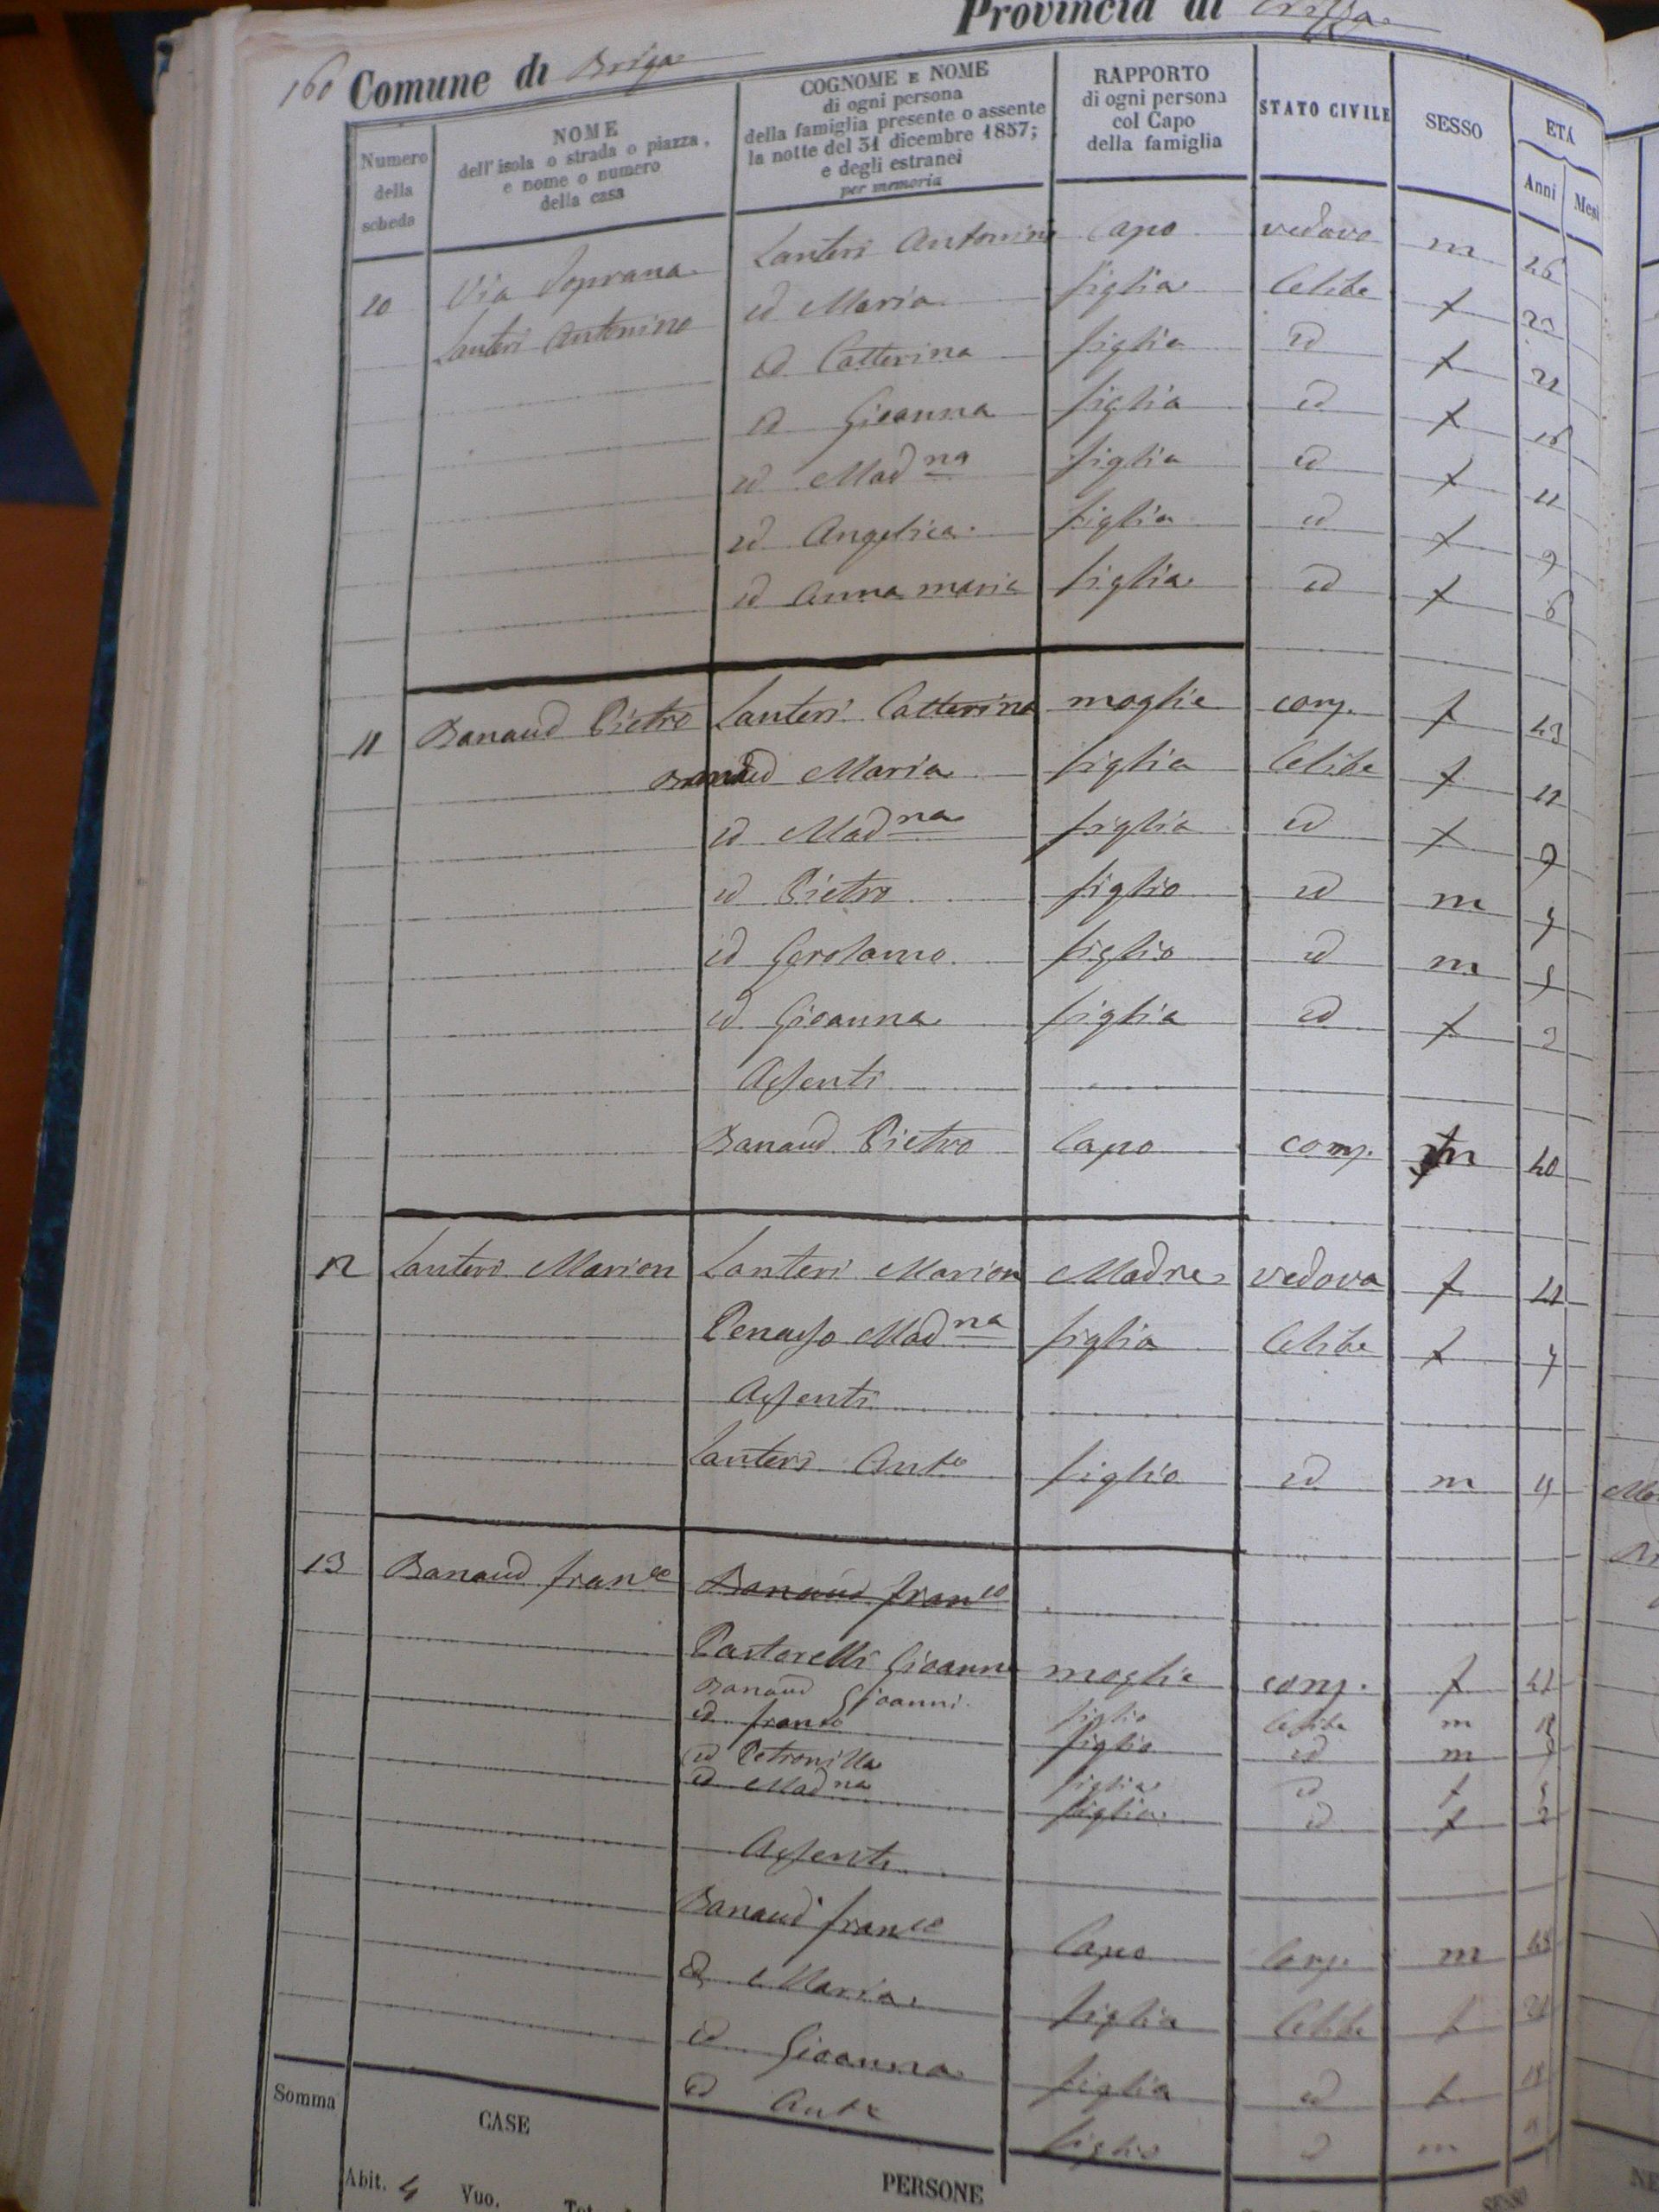 Provincia di
160 Comune di Briga
Numero della scheda
NOME dell'isola o strada o piazza, e nome o numero della casa
COGNOME E NOME di ogni persona della famiglia presente o assente la notte del 31 dicembre 1857; e degli estranei per memoria
RAPPORTO di ogni persona col Capo della famiglia
STATO CIVILE
SESSO
ETÀ
Anni Mesi
Via Soprana Lanteri Antonino capo vedovo m
10 Lanteri Antonino id Maria figlia Celibe f
id Catterina figlia id f
id Gioanna figlia id f
id Mad na figlia id f 11
id Angelica figlia id f 9
id Anna maria figlia id f 6
11 Banaud Pietro Lanteri Catterina moglie conj. f 43
Banaud Maria figlia Celibe f 11
id Mad na figlia id f 9
id Pietro figlio id m
id Gerolamo figlio id m
id Gioanna figlia id f 3
Assenti
Banaud Pietro Capo conj. m 40
12 Lanteri Marion Lanteri Marion Madre vedova f
Penasso Mad na figlia Celibe f
Assenti
Lanteri Anto figlio id m
13 Banaud franco Banaud franco
Pastorelli Gioanna moglie conj. f
Banaud Gioanni figlio Celibe m
id franco figlio id m
id Petronilla figlia id f
id Mad na figlia id f
Assenti
Banaud franco Capo Conj. m
id Maria figlia Celibe f
id Gioanna figlia id f
id Anto figlio id m
Somma
CASE
PERSONE
SESSO
Abit. 4 Vuo.